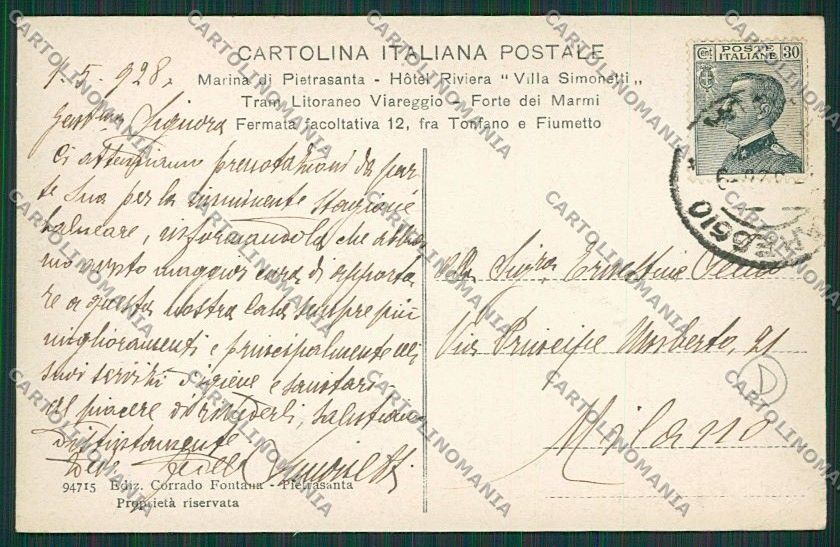 CARTOLINA ITALIANA POSTALE
Marina di Pietrasanta - Hôtel Riviera "Villa Simonetti„
Tram Litoraneo Viareggio - Forte dei Marmi
Fermata facoltativa 12, fra Tonfano e Fiumetto
Cent POSTE ITALIANE 30
1.5.928.
Signora
Ci attendiamo prenotazioni da par
te Sua per la imminente stagione
balneare, informandola che abbia
mo avuto maggior cura di apporta
re a questa nostra Casa sempre più
miglioramenti e principalmente nei
suoi servizi d'igiene e sanitari
al piacere di rivederli, salutiamo
Distintamente
Simonetti
94715 Ediz. Corrado Fontana - Pietrasanta
Proprietà riservata
VIAREGGIO
Sigra Ernestina
Via Principe Umberto, 21
D
Milano
CARTOLINOMANIA